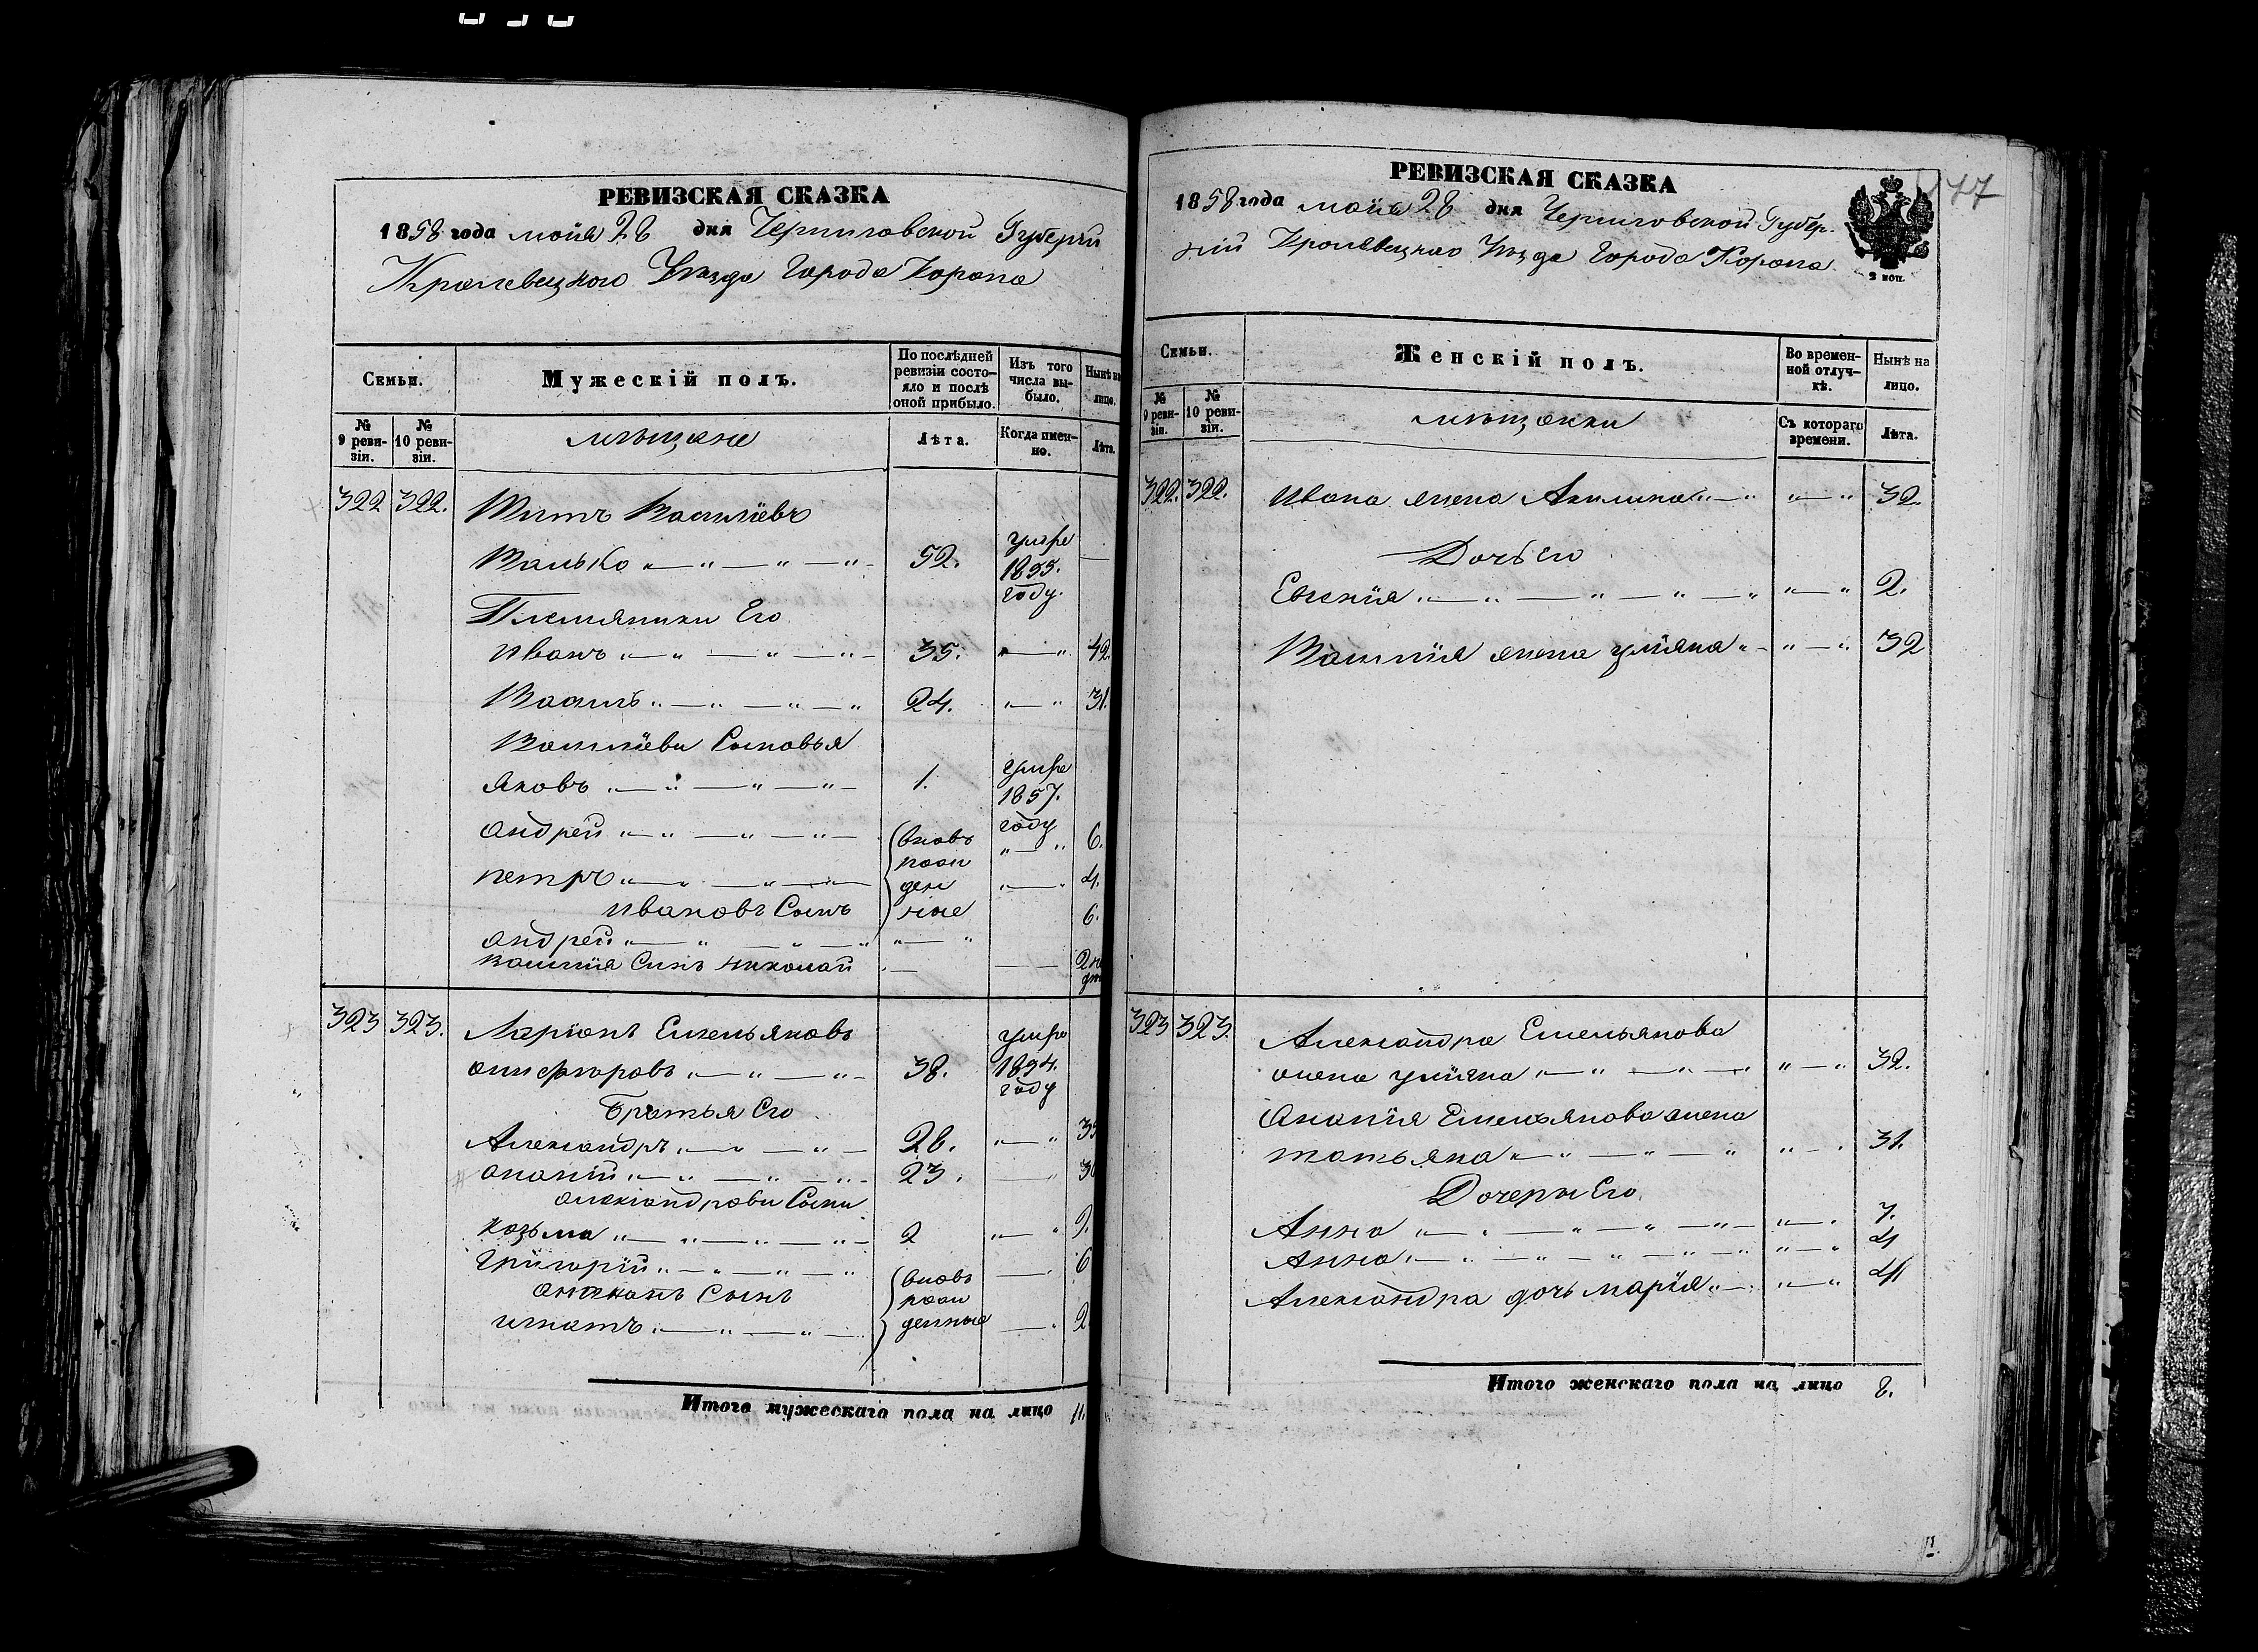 РЕВИЗСКАЯ СКАЗКА
1858 года мая 28 дня Черниговской Губерніи
Кролевецкого Уезда Города Коропа
Семьи.
Мужескій полъ.
По послѣдней ревизіи состояло и послѣ оной прибыло.
Изъ того числа выбыло.
Нынѣ на лицо.
№ 9 ревизіи.
№ 10 ревизіи.
мещане
Лѣта.
Когда именно.
Лѣта.
322 322. Титъ Василіевъ
Валько 52. умре 1855. году.
Племяники Его
Иванъ 35. 42.
Василь 24. 31.
Василіеви Сыновья
Яковъ 1. умре 1857. году
Андрей вновь рожденные 6.
петръ 4.
Ивановъ Сынъ 6.
Андрей
василия Сынъ Николай
323 323. Ларіонъ Емельяновъ умре
38. 1854. году
Братья Его
Александръ 28.
Ананій 23.
Александрови Сыни
Козьма 2 9.
Григорій вновь рожденные 6
Сынъ
Игнатъ 2
Итого мужескаго пола на лицо 11.
РЕВИЗСКАЯ СКАЗКА
1858 года мая 28 дня Черниговской Губер-
ніи Кролевецкаго Уезда Города Коропа
2 коп.
Семьи.
Женскій полъ.
Во временной отлучкѣ.
Нынѣ на лицо.
№ 9 ревизіи.
№ 10 ревизіи.
мещанки
Съ котораго времени.
Лѣта.
322. 322. Ивана жена Акилина 32.
Дочь его
Евгенія 2.
Василия жена уліяна 32
323 323. Александра Емельянова
жена уліяна 32.
Ананія Емельянова жена
татьяна 31.
Дочери Его
Анна 7.
Анна 4
Александра дочь марія 4
Итого женскаго пола на лицо 8.